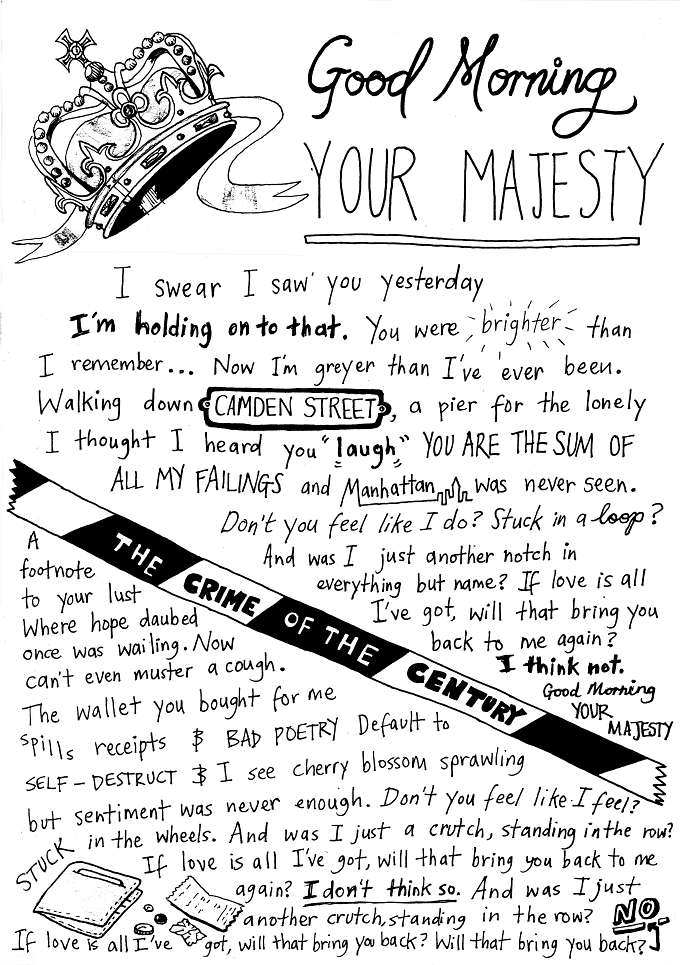 Good Morning
YOUR MAJESTY
I swear I saw you yesterday
I'm holding on to that. You were brighter than
I remember... Now I'm greyer than I've ever been.
Walking down CAMDEN STREET, a pier for the lonely
I thought I heard you "laugh" YOU ARE THE SUM OF
ALL MY FAILINGS and Manhattan was never seen.
Don't you feel like I do? Stuck in a loop?
And was I just another notch in
everything but name? If love is all
I've got, will that bring you
back to me again?
I think not.
Good Morning
YOUR
MAJESTY
THE CRIME OF THE CENTURY
A
footnote
to your lust
Where hope daubed
once was wailing. Now
can't even muster a cough.
The wallet you bought for me
spills receipts & BAD POETRY Default to
SELF-DESTRUCT & I see cherry blossom sprawling
but sentiment was never enough. Don't you feel like I feel?
STUCK in the wheels. And was I just a crutch, standing in the row?
If love is all I've got, will that bring you back to me
again? I don't think so. And was I just
another crutch, standing in the row? NO
If love is all I've got, will that bring you back? Will that bring you back?